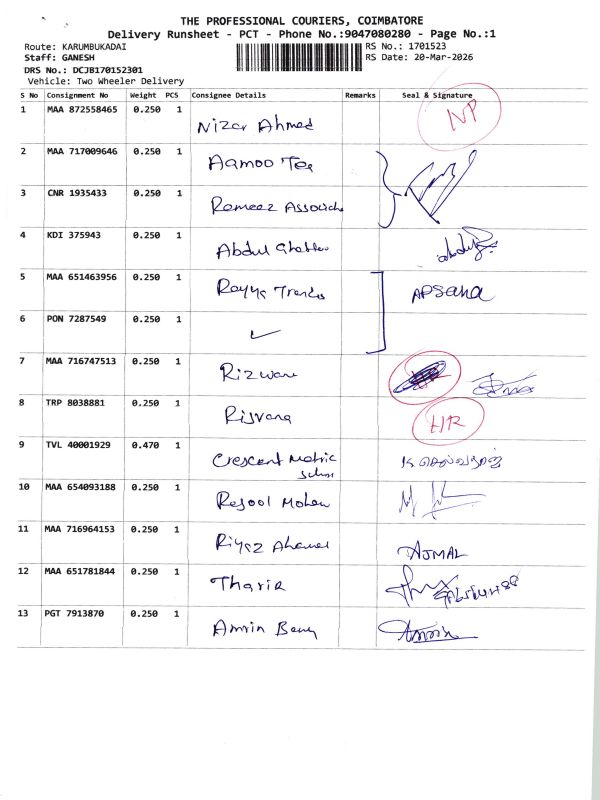 THE PROFESSIONAL COURIERS, COIMBATORE
Delivery Runsheet - PCT - Phone No.:9047080280 - Page No.:1
Route: KARUMBUKADAI
RS No.: 1701523
Staff: GANESH
RS Date: 20-Mar-2026
DRS No.: DCJB170152301
Vehicle: Two Wheeler Delivery
S No Consignment No Weight PCS Consignee Details Remarks Seal & Signature
1 MAA 872558465 0.250 1 Nizar Ahmed NP
2 MAA 717009646 0.250 1 Aamoo Tex
3 CNR 1935433 0.250 1 Rameez Associates
4 KDI 375943 0.250 1 Abdul
5 MAA 651463956 0.250 1 Rayya Trends APSANA
6 PON 7287549 0.250 1 ✓
7 MAA 716747513 0.250 1 Rizwan
8 TRP 8038881 0.250 1 Risvana HR
9 TVL 40001929 0.470 1 Crescent Matric
10 MAA 654093188 0.250 1 Rasool
11 MAA 716964153 0.250 1 Riyaz Ahamed AJMAL
12 MAA 651781844 0.250 1 Tharik
13 PGT 7913870 0.250 1 Amrin Banu